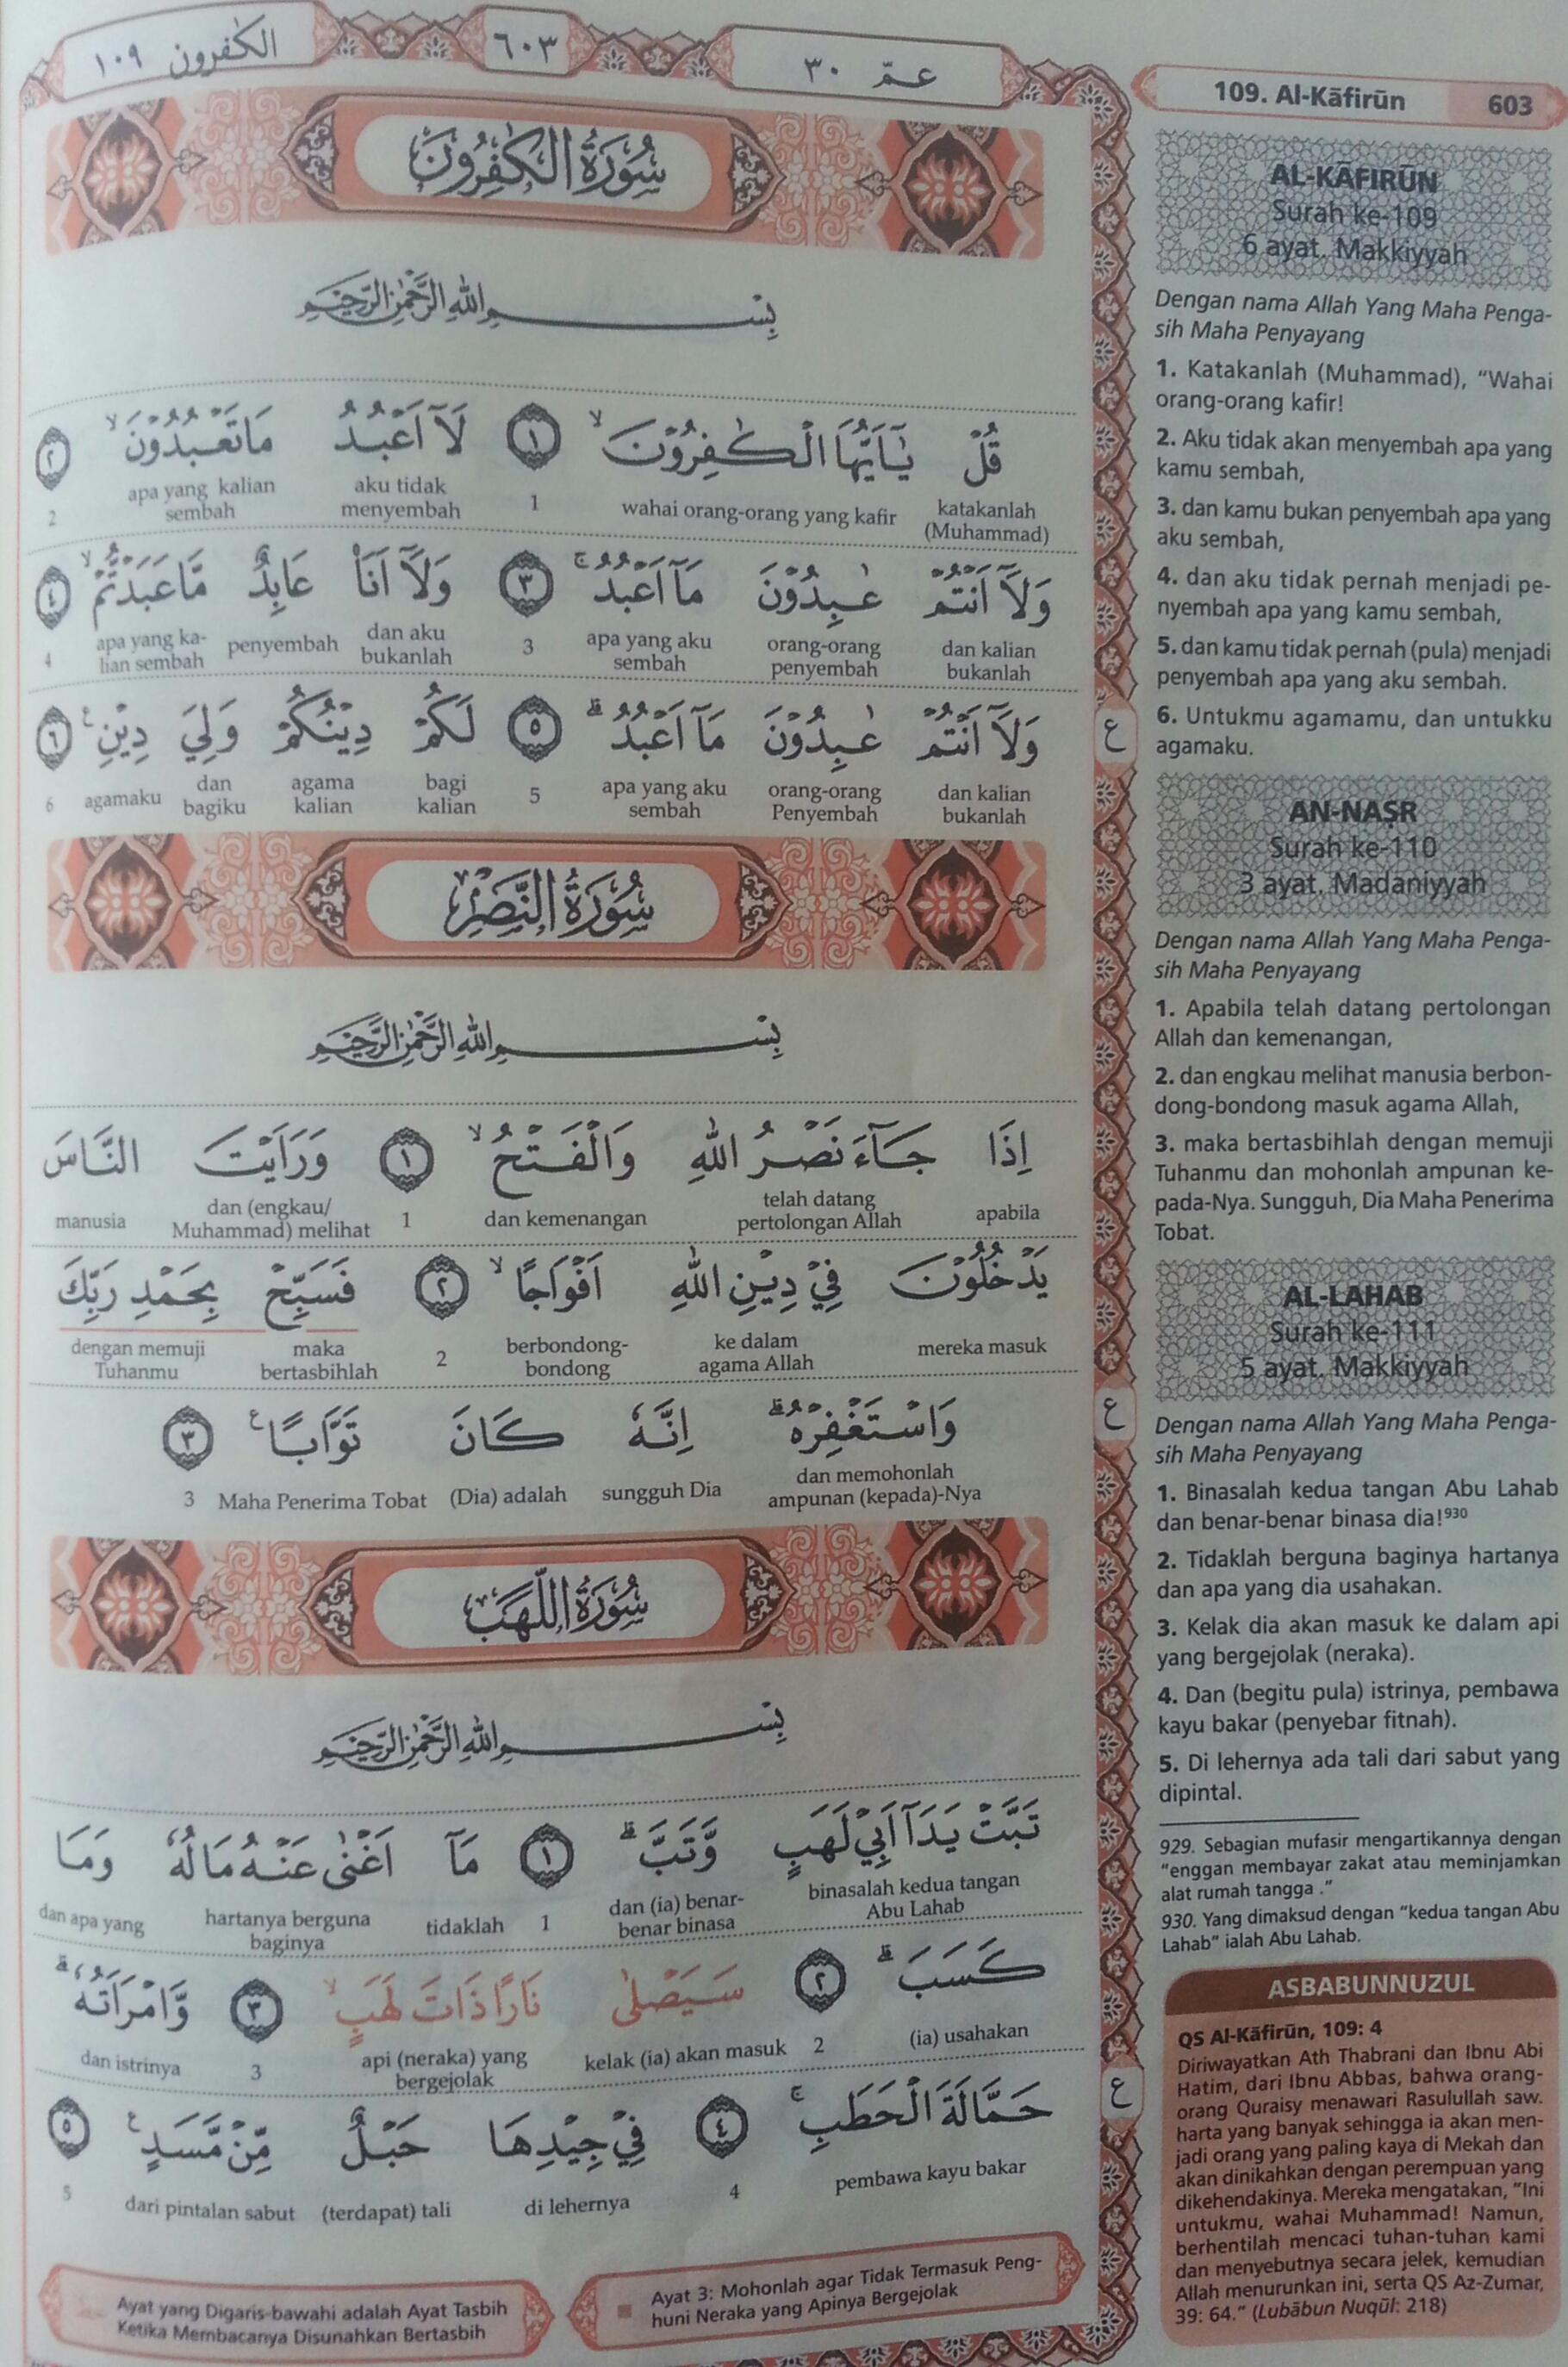 الكٰفرون ١٠٩
٦٠٣
عـمّ ٣٠
سُوْرَةُ الْكٰفِرُوْنَ
بِسْمِ اللّٰهِ الرَّحْمٰنِ الرَّحِيْمِ
قُلْ يٰٓاَيُّهَا الْكٰفِرُوْنَۙ ١ لَآ اَعْبُدُ مَا تَعْبُدُوْنَۙ ٢
katakanlah (Muhammad) wahai orang-orang yang kafir 1 aku tidak menyembah apa yang kalian sembah 2
وَلَآ اَنْتُمْ عٰبِدُوْنَ مَآ اَعْبُدُۚ ٣ وَلَآ اَنَا۠ عَابِدٌ مَّا عَبَدْتُّمْۙ ٤
dan kalian bukanlah orang-orang penyembah apa yang aku sembah 3 dan aku bukanlah penyembah apa yang ka-lian sembah 4
وَلَآ اَنْتُمْ عٰبِدُوْنَ مَآ اَعْبُدُۗ ٥ لَكُمْ دِيْنُكُمْ وَلِيَ دِيْنِࣖ ٦
dan kalian bukanlah orang-orang Penyembah apa yang aku sembah 5 bagi kalian agama kalian dan bagiku agamaku 6
سُوْرَةُ النَّصْرِ
بِسْمِ اللّٰهِ الرَّحْمٰنِ الرَّحِيْمِ
اِذَا جَاۤءَ نَصْرُ اللّٰهِ وَالْفَتْحُۙ ١ وَرَاَيْتَ النَّاسَ
apabila telah datang pertolongan Allah dan kemenangan 1 dan (engkau/Muhammad) melihat manusia
يَدْخُلُوْنَ فِيْ دِيْنِ اللّٰهِ اَفْوَاجًاۙ ٢ فَسَبِّحْ بِحَمْدِ رَبِّكَ
mereka masuk ke dalam agama Allah berbondong-bondong 2 maka bertasbihlah dengan memuji Tuhanmu
وَاسْتَغْفِرْهُۗ اِنَّهٗ كَانَ تَوَّابًاࣖ ٣
dan memohonlah ampunan (kepada)-Nya sungguh Dia (Dia) adalah Maha Penerima Tobat 3
سُوْرَةُ اللَّهَبِ
بِسْمِ اللّٰهِ الرَّحْمٰنِ الرَّحِيْمِ
تَبَّتْ يَدَآ اَبِيْ لَهَبٍ وَّتَبَّۗ ١ مَآ اَغْنٰى عَنْهُ مَالُهٗ وَمَا
binasalah kedua tangan Abu Lahab dan (ia) benar-benar binasa 1 tidaklah hartanya berguna baginya dan apa yang
كَسَبَۗ ٢ سَيَصْلٰى نَارًا ذَاتَ لَهَبٍۙ ٣ وَّامْرَاَتُهٗۗ
(ia) usahakan 2 kelak (ia) akan masuk api (neraka) yang bergejolak 3 dan istrinya
حَمَّالَةَ الْحَطَبِۚ ٤ فِيْ جِيْدِهَا حَبْلٌ مِّنْ مَّسَدٍࣖ ٥
pembawa kayu bakar 4 di lehernya (terdapat) tali dari pintalan sabut 5
Ayat yang Digaris-bawahi adalah Ayat Tasbih
Ketika Membacanya Disunahkan Bertasbih
Ayat 3: Mohonlah agar Tidak Termasuk Peng-
huni Neraka yang Apinya Bergejolak
ع
ع
ع
109. Al-Kāfirūn 603
AL-KĀFIRŪN
Surah ke-109
6 ayat. Makkiyyah
Dengan nama Allah Yang Maha Penga-
sih Maha Penyayang
1. Katakanlah (Muhammad), “Wahai
orang-orang kafir!
2. Aku tidak akan menyembah apa yang
kamu sembah,
3. dan kamu bukan penyembah apa yang
aku sembah,
4. dan aku tidak pernah menjadi pe-
nyembah apa yang kamu sembah,
5. dan kamu tidak pernah (pula) menjadi
penyembah apa yang aku sembah.
6. Untukmu agamamu, dan untukku
agamaku.
AN-NAṢR
Surah ke-110
3 ayat. Madaniyyah
Dengan nama Allah Yang Maha Penga-
sih Maha Penyayang
1. Apabila telah datang pertolongan
Allah dan kemenangan,
2. dan engkau melihat manusia berbon-
dong-bondong masuk agama Allah,
3. maka bertasbihlah dengan memuji
Tuhanmu dan mohonlah ampunan ke-
pada-Nya. Sungguh, Dia Maha Penerima
Tobat.
AL-LAHAB
Surah ke-111
5 ayat. Makkiyyah
Dengan nama Allah Yang Maha Penga-
sih Maha Penyayang
1. Binasalah kedua tangan Abu Lahab
dan benar-benar binasa dia!930
2. Tidaklah berguna baginya hartanya
dan apa yang dia usahakan.
3. Kelak dia akan masuk ke dalam api
yang bergejolak (neraka).
4. Dan (begitu pula) istrinya, pembawa
kayu bakar (penyebar fitnah).
5. Di lehernya ada tali dari sabut yang
dipintal.
929. Sebagian mufasir mengartikannya dengan
“enggan membayar zakat atau meminjamkan
alat rumah tangga .”
930. Yang dimaksud dengan “kedua tangan Abu
Lahab” ialah Abu Lahab.
ASBABUNNUZUL
QS Al-Kāfirūn, 109: 4
Diriwayatkan Ath Thabrani dan Ibnu Abi
Hatim, dari Ibnu Abbas, bahwa orang-
orang Quraisy menawari Rasulullah saw.
harta yang banyak sehingga ia akan men-
jadi orang yang paling kaya di Mekah dan
akan dinikahkan dengan perempuan yang
dikehendakinya. Mereka mengatakan, “Ini
untukmu, wahai Muhammad! Namun,
berhentilah mencaci tuhan-tuhan kami
dan menyebutnya secara jelek, kemudian
Allah menurunkan ini, serta QS Az-Zumar,
39: 64.” (Lubābun Nuqūl: 218)